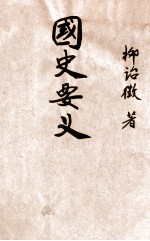 國史要义
柳诒徵 著